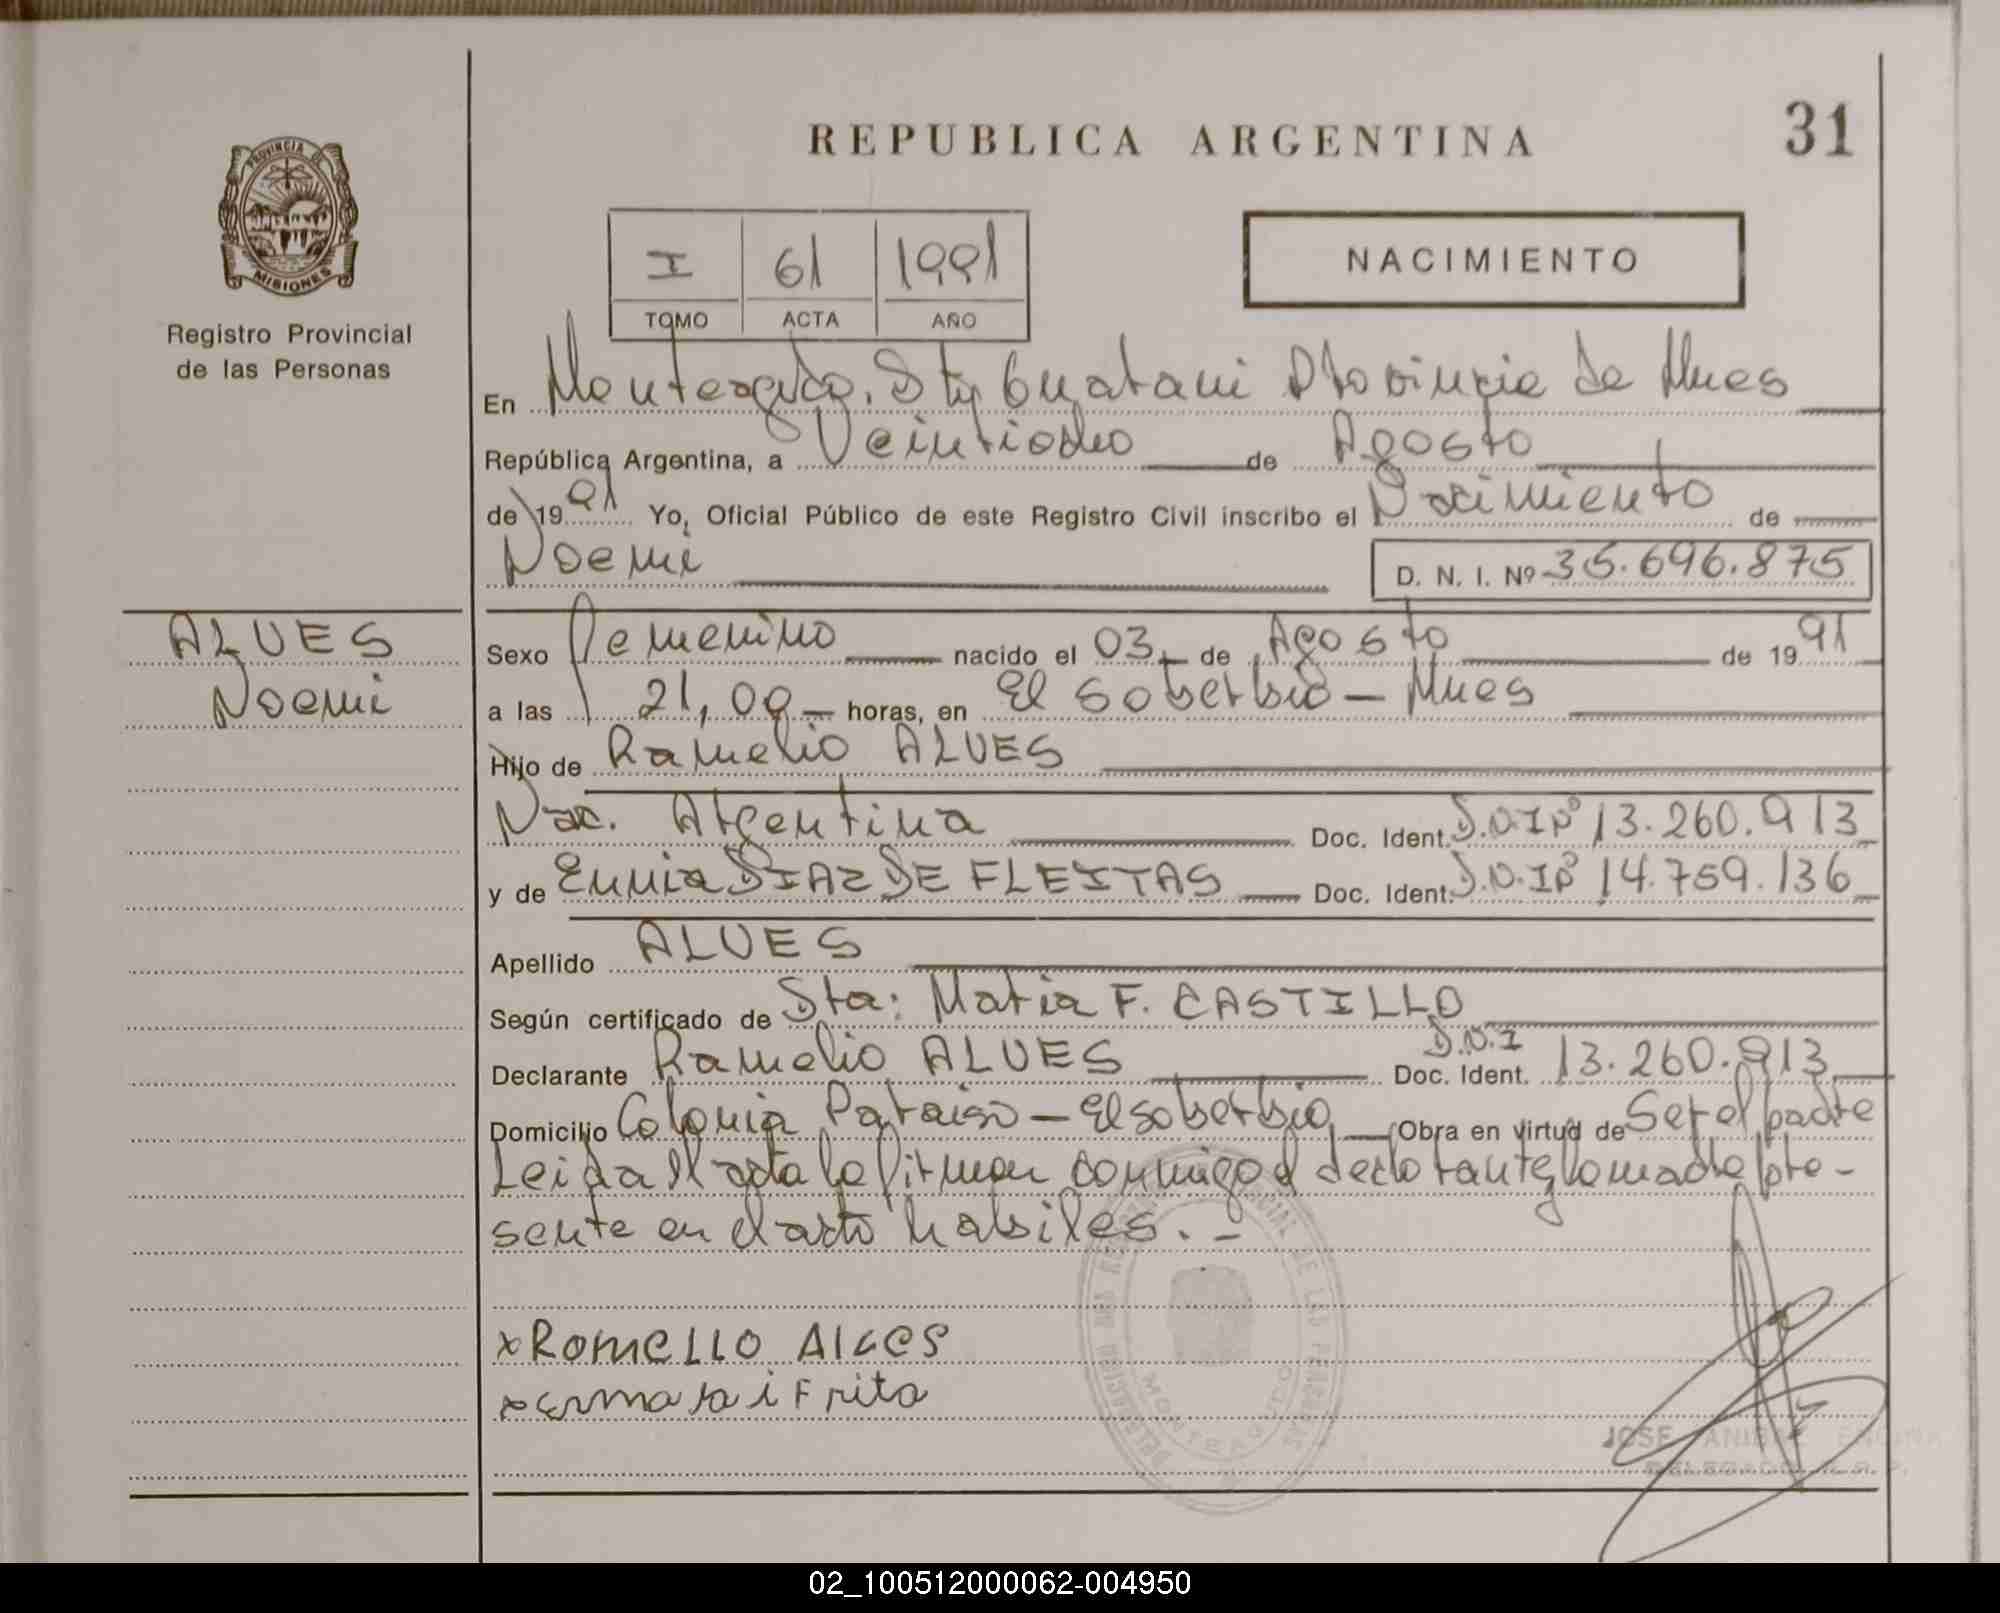 REPUBLICA ARGENTINA
31
PROVINCIA DE
MISIONES
Registro Provincial
de las Personas
I 61 1991
TOMO ACTA AÑO
NACIMIENTO
En Monteagudo, Dto Guarani Provincia de Mnes
República Argentina, a Veintiocho de Agosto
de 1991 Yo, Oficial Público de este Registro Civil inscribo el Nacimiento de
Noemi D. N. I. Nº 35.696.875
ALVES
Noemi
Sexo Femenino nacido el 03 de Agosto de 1991
a las 21,00 horas, en El Soberbio - Mnes
Hijo de Ramelio ALVES
Nac. Argentina Doc. Ident. D.N.I Nº 13.260.913
y de Enmia DIAZ DE FLEITAS Doc. Ident. D.N.I Nº 14.759.136
Apellido ALVES
Según certificado de Sta: Maria F. CASTILLO
Declarante Ramelio ALVES Doc. Ident. D.N.I 13.260.913
Domicilio Colonia Paraiso - El soberbio Obra en virtud de Ser el padre
Leida el acta la firman conmigo el declarante y la madre pre-
sente en el acto habiles. -
x ROMELLO Alves
x
MONTEAGUDO
JOSE ANIBAL ENCINA
DELEGADO R. P.
02_100512000062-004950